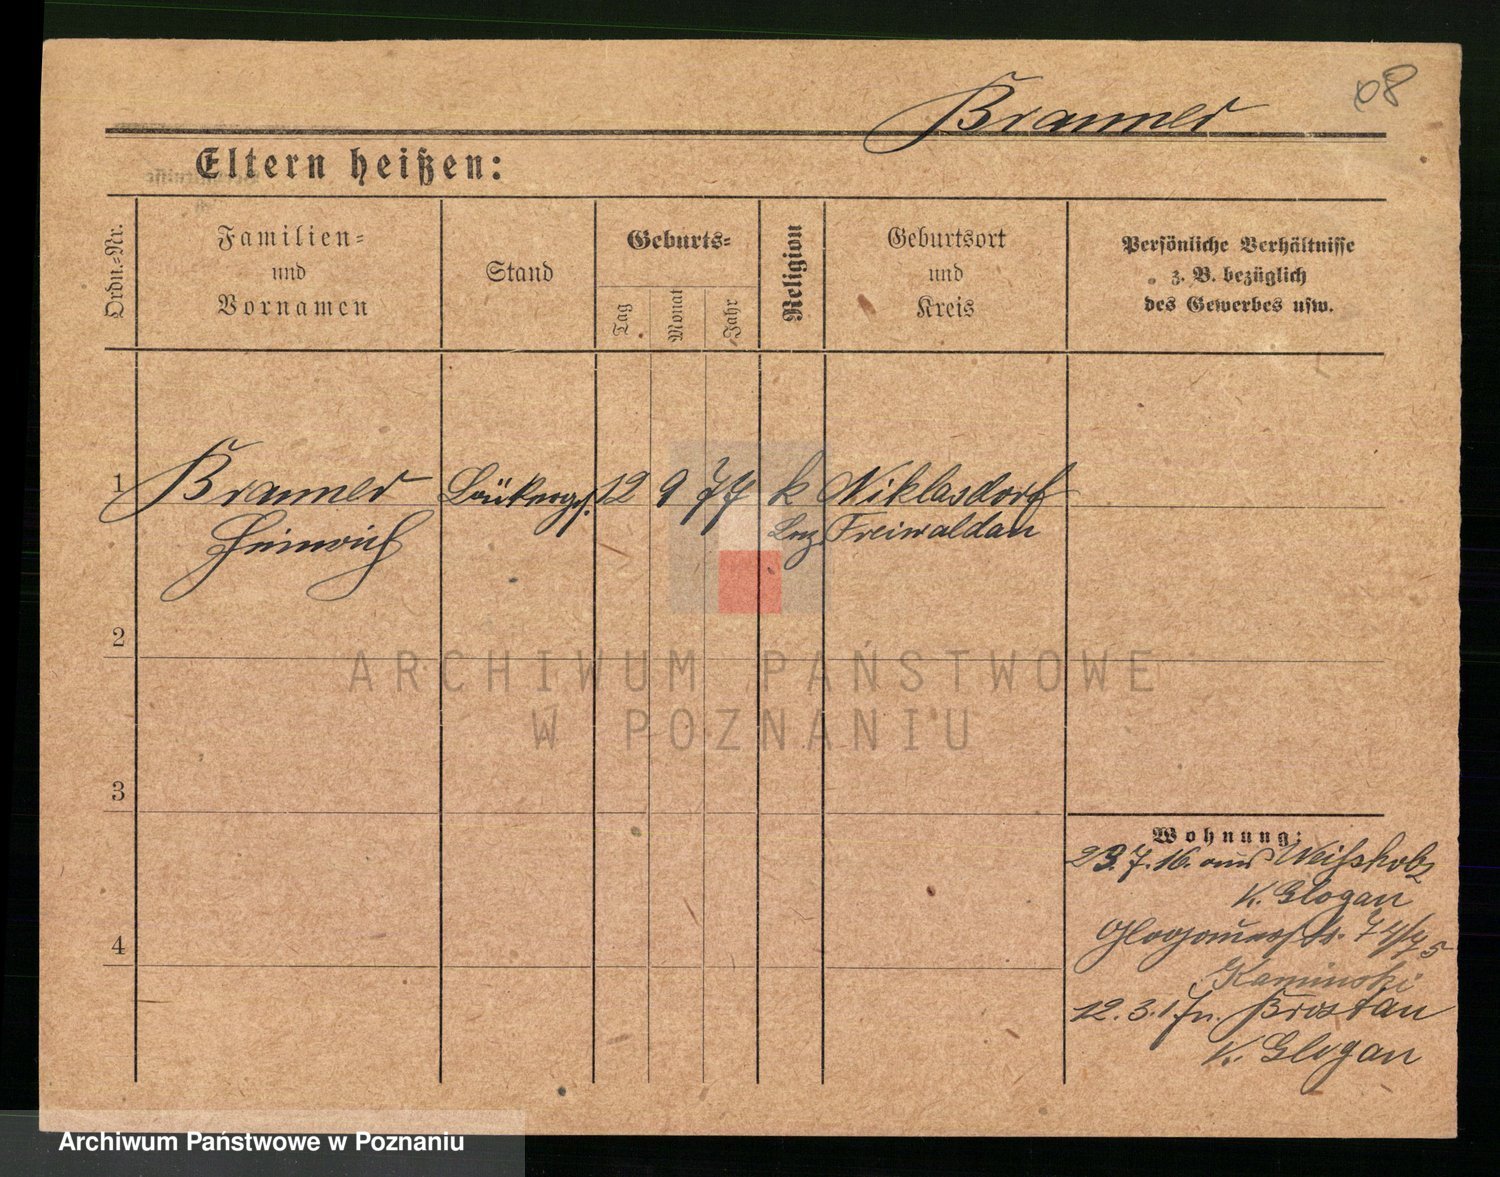 08
Brauner
Eltern heißen:
Ordn.-Nr.
Familien-
und
Vornamen
Stand
Geburts-
Tag
Monat
Jahr
Religion
Geburtsort
und
Kreis
Persönliche Verhältnisse
z. B. bezüglich
des Gewerbes usw.
1 Brauner 12 9 77 k Niklasdorf
Heinrich Freiwaldau
2
3
4
Wohnung:
23.7.16. aus Weißholz
K. Glogau
Glogauerstr. 74/75
Kaminski
12.3.17 n. Brostau
K. Glogau
ARCHIWUM PAŃSTWOWE
W POZNANIU
Archiwum Państwowe w Poznaniu